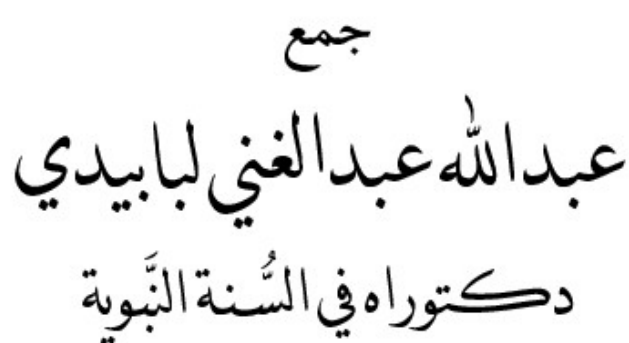 جمع
عبدالله عبدالغني لبابيدي
دكتوراه في السُّنة النَّبوية